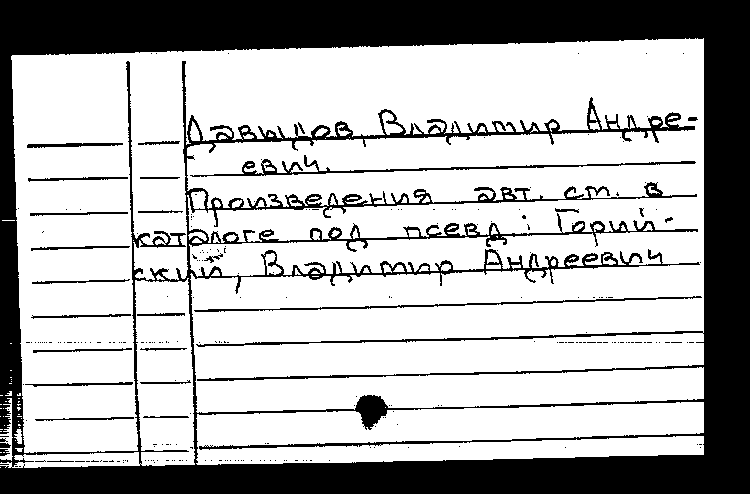 Давыдов, Владимир Андре-
евич.
Произведения авт. ст. в
каталоге под псевд.: Горий-
ский, Владимир Андреевич